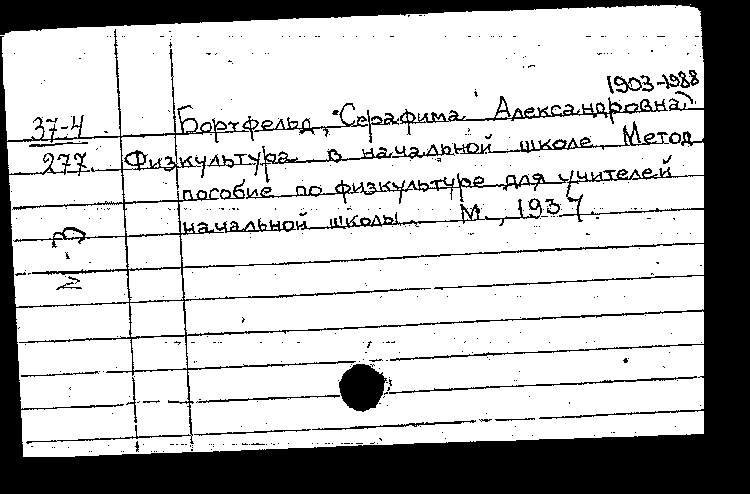 1903-1988
37-4 Бортфельд, Серафима Александровна
277. Физкультура в начальной школе. Метод
пособие по физкультуре для учителей
начальной школы. М., 1937.